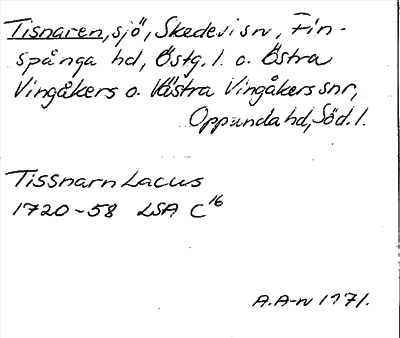 Tisnaren, sjö, Skedevi sn, Fin-
spånga hd, Östg. l. o. Östra
Vingåkers o. Västra Vingåkers snr,
Oppunda hd, Söd. l.
Tissnarn Lacus
1720-58 LSA C 16
A.A-n 1971.